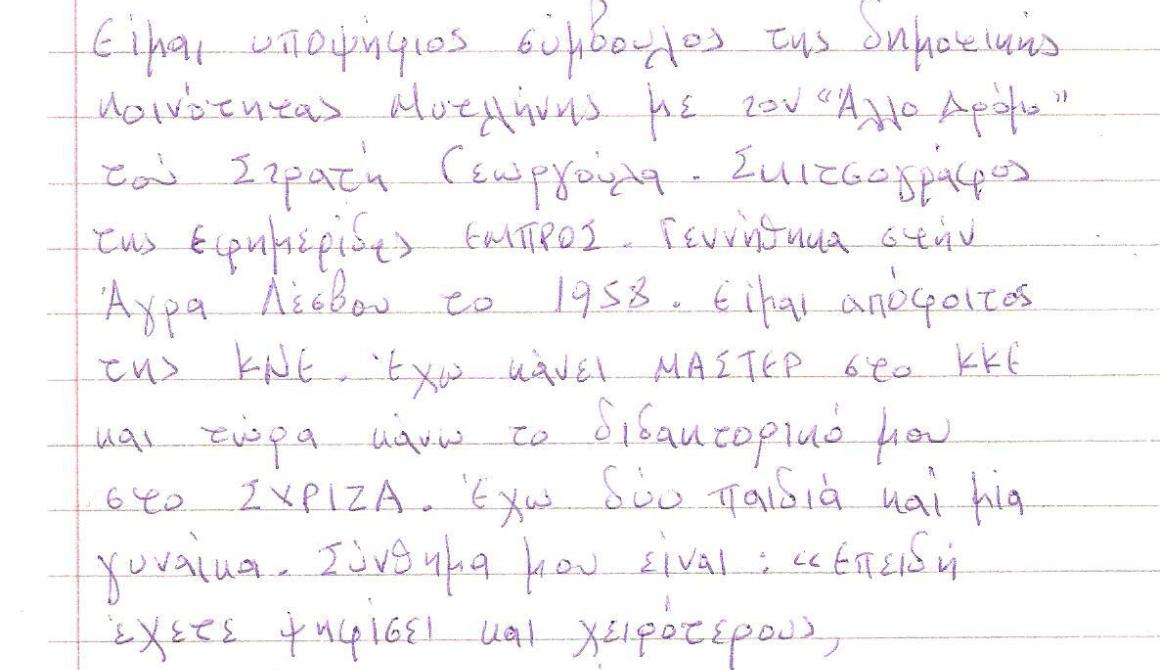 Είμαι υποψήφιος σύμβουλος της δημοτικής
κοινότητας Μυτλήνης με τον "Άλλο Δρόμο"
του Στρατή Γεωργούλα. Σκιτσογράφος
της εφημερίδας ΕΜΠΡΟΣ. Γεννήθηκα στήν
Άγρα Λέσβου το 1958. Είμαι απόφοιτος
της ΚΝΕ. Έχω κάνει ΜΑΣΤΕΡ στο ΚΚΕ
και τώρα κάνω το διδακτορικό μου
στο ΣΥΡΙΖΑ. Έχω δύο παιδιά και μία
γυναίκα. Σύνθημα μου είναι: «Επειδή
έχετε ψηφίσει και χειρότερους,